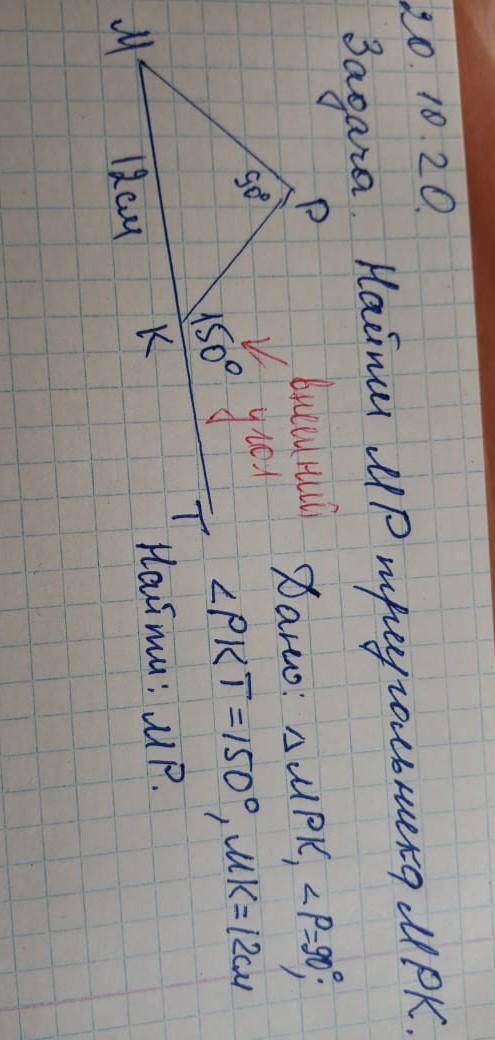 20.10.20.
Задача. Найти МР треугольника МРК.
Р
90°
М
12см
К
150°
Т
внешний
угол
Дано: △МРК, ∠Р=90°,
∠РКТ=150°, МК=12см
Найти: МР.